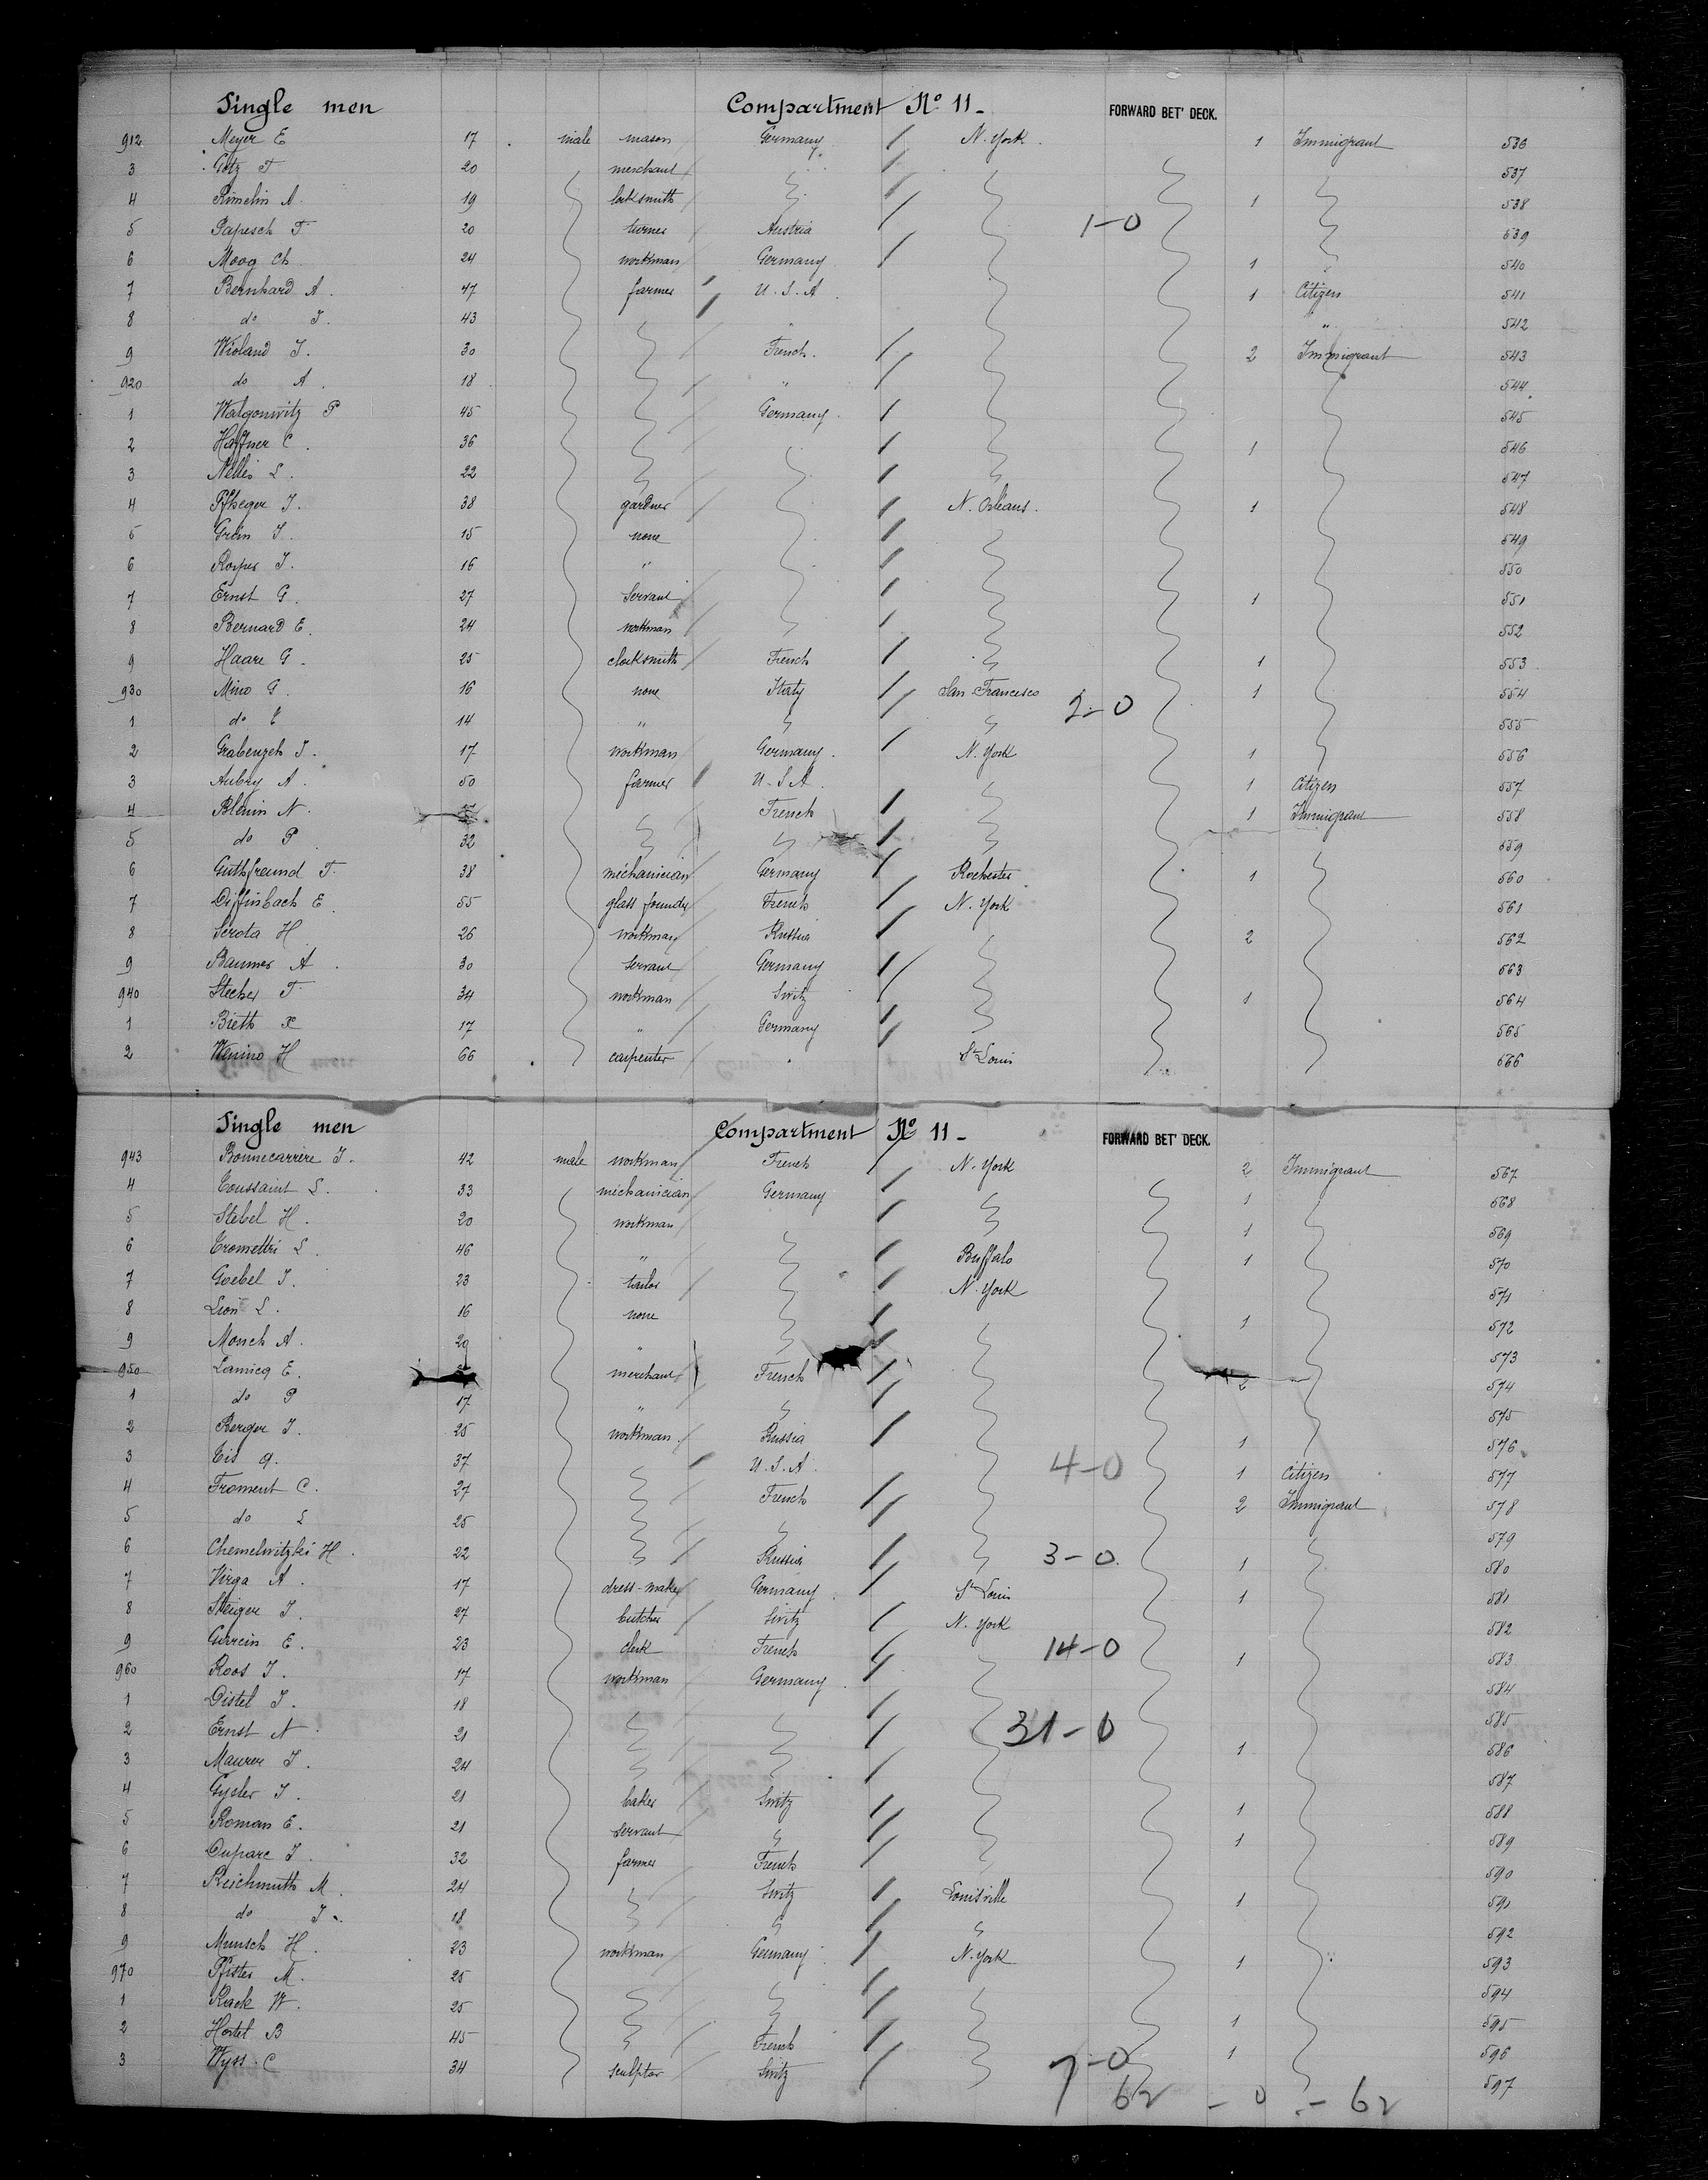 Single men Compartment No 11 - FORWARD BET' DECK.
912 Meyer E 17 male mason Germany N. York 1 Immigrant 536
3 Götz F 20 merchant 537
4 Rimelin A. 19 locksmith 1 538
5 Papesch F 20 turner Austria 1-0 539
6 Moog Ch 24 workman Germany 1 540
7 Bernhard A. 47 farmer U.S.A. 1 Citizen 541
8 do J. 43 " " 542
9 Wioland J. 30 French. 2 Immigrant 543
920 do A. 18 " 544
1 Walgonwitz P 45 Germany. 545
2 Haffner C. 36 1 546
3 Nellis L. 22 547
4 Pfleger J. 38 gardner N. Orleans. 1 548
5 Grün J. 15 none 549
6 J. 16 " 550
7 Ernst G. 27 Servant 1 551
8 Bernard E. 24 workman 552
9 Haare G. 25 clocksmith French 1 553
930 Mino G. 16 none Italy San Francesco 2-0 1 554
1 do 14 " 555
2 Grabenzeh J. 17 workman Germany. N. York 1 556
3 Aubry A. 50 farmer U.S.A. 1 Citizen 557
4 Blenin N. French 1 Immigrant 558
5 do P 32 559
6 Guthfreund F. 38 méchanician Germany Rochester 1 560
7 Diffinbach E. 55 glass foundy French N. York 561
8 Serota H 26 workman Russia 2 562
9 Baumer A. 30 Servant Germany 563
940 Stecher F. 34 workman Switz 1 564
1 Bieth X 17 " Germany 565
2 Wanino H 66 carpenter " St Louis 566
Single men Compartment No 11 - FORWARD BET' DECK.
943 Bonnecarrère J. 42 male workman French N. York 2 Immigrant 567
4 Toussaint L. 33 méchanician Germany 1 568
5 Stebel H. 20 workman 1 569
6 Tromettri L. 46 " Buffalo 1 570
7 Goebel J. 23 tailor N. York 571
8 Lion L. 16 none 1 572
9 Monch A. 29 " 573
950 Lamicq E. merchant French 2 574
1 do P 17 " 575
2 Berger J. 25 workman. Russia 1 576
3 37 U.S.A. 4-0 1 Citizen 577
4 Froment C. 27 French 2 Immigrant 578
5 do L 25 579
6 Chemelwitzki H. 22 Russia 3-0. 1 580
7 Virga A. 17 dress-maker Germany. St Louis 1 581
8 Steiger J. 27 butcher Switz N. York 582
9 Guerein E. 23 clerk French 14-0 1 583
960 Roos J. 17 workman Germany. 584
1 Distel J. 18 585
2 Ernst N. 21 31-0 1 586
3 Maurer J. 24 587
4 Gysler J. 21 baker Switz 1 588
5 Roman E. 21 servant 1 589
6 Duparc J. 32 farmer French 590
7 Reichmuth M. 24 Switz Louisville 1 591
8 do J. 18 592
9 Munsch H. 23 workman Germany N. York 1 593
970 Pfister M. 25 594
1 Rack W. 25 1 595
2 Hortel B 45 French 1 596
3 Wyss. C 34 sculptor Switz 7-0 597
62 - 0 - 62